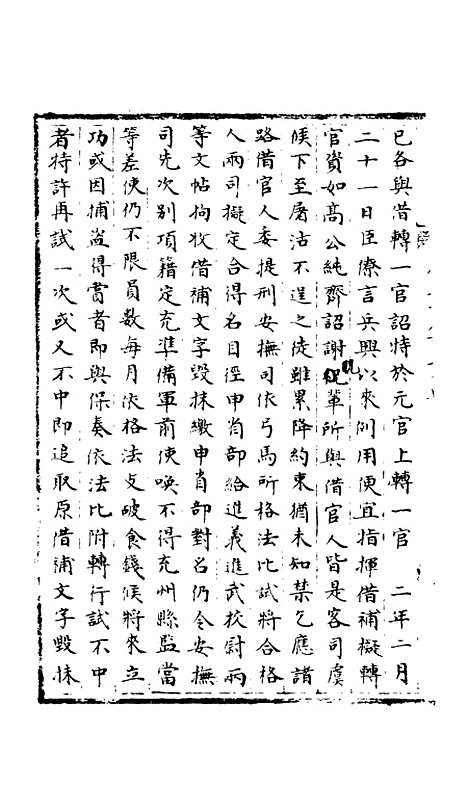 已各與借轉一官詔特於元官上轉一官　二年二月
二十一日臣僚言兵興以來例用便宜指揮借補擬轉
官資如高公純齊詔謝貺輩所與借官人皆是客司虞
候下至屠沽不逞之徒雖累降約束猶未知禁乞應諸
路借官人委提刑安撫司依弓馬所格法比試將合格
人兩司擬定合得名目逕申省部給進義進武校尉兩
等文帖拘收借補文字毀抹繳申省部對名仍令安撫
司先次別項籍定充準備軍前使喚不得充州縣監當
等差使仍不限員數每月依格法支破食錢候將來立
功或因捕盜得賞者即與保奏依法比附轉行試不中
者特許再試一次或又不中即追取原借補文字毀抹